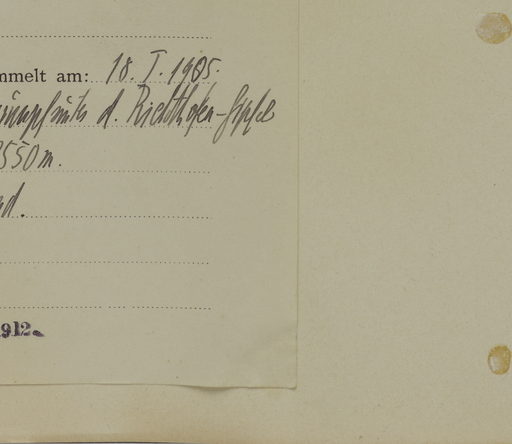 mmelt am: 18. I. 1905.
d. Richthofen-Gipfel
3550 m.
nd.
1912.